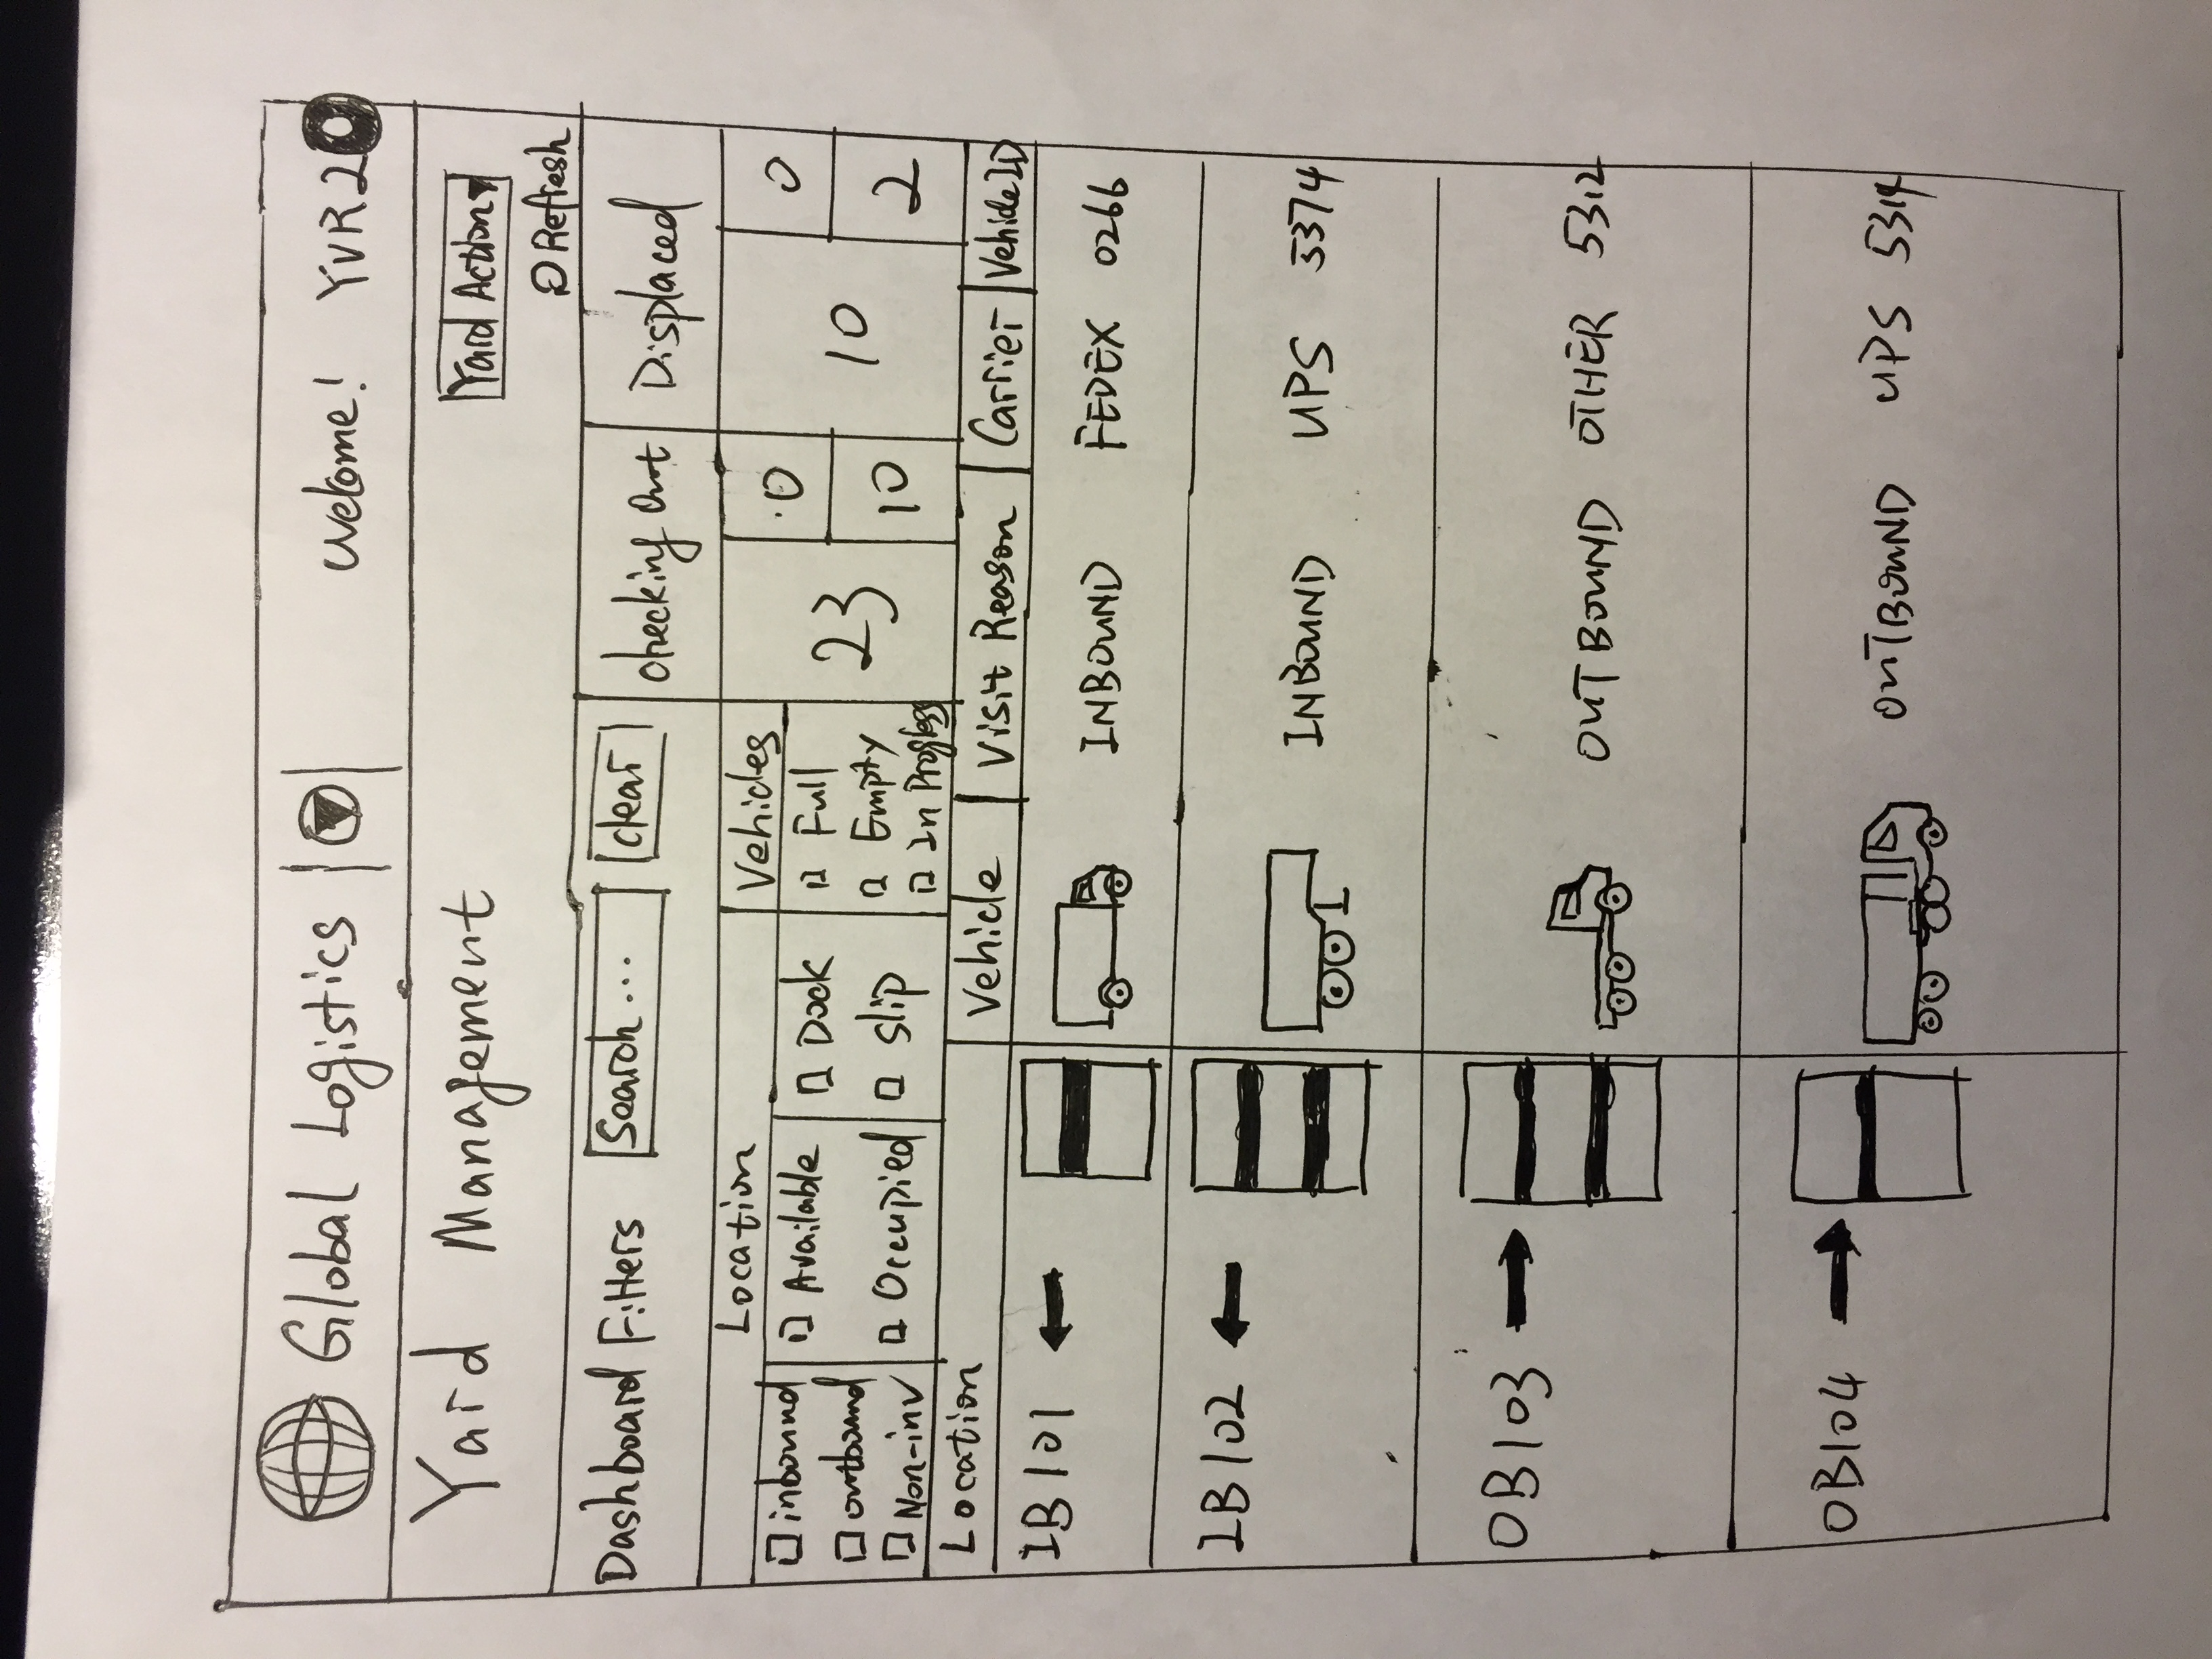 Global Logistics
Welcome! YVR2
Yard Management
Yard Action
Refresh
Dashboard Filters
Search ...
clear
checking Out
Displaced
Location
Vehicles
inbound
outbound
Non-inv
Available
Occupied
Dock
Slip
Full
Empty
In Progress
23
0
10
10
0
2
Location
Vehicle
Visit Reason
Carrier
Vehicle ID
IB101 INBOUND FEDEX 0266
IB102 INBOUND UPS 5374
OB103 OUTBOUND OTHER 5312
OB104 OUTBOUND UPS 5314